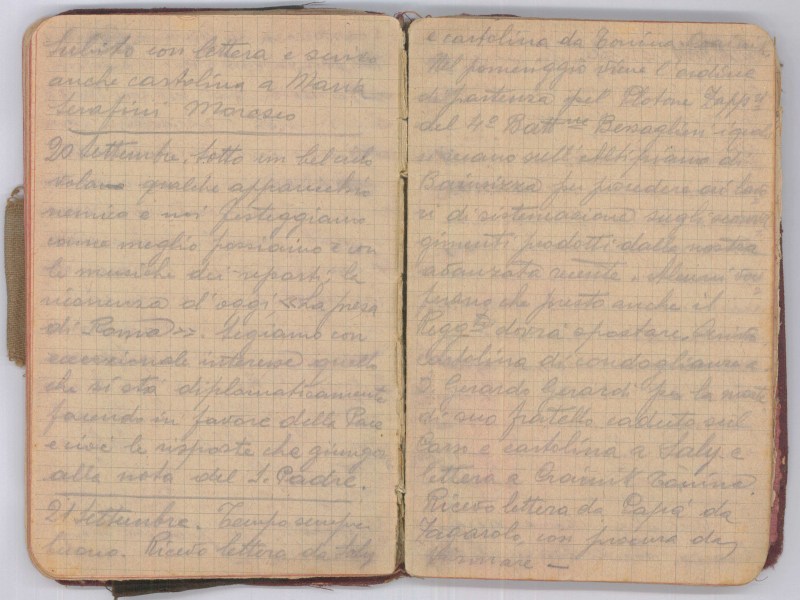 subito con lettera e scrivo
anche cartolina a Maria
Serafini Morosio
20 Settembre. Sotto un bel cielo
volano qualche apparecchio
nemico e noi festeggiamo
come meglio possiamo e con
le musiche dei reparti, la
ricorrenza d'oggi, «La presa
di Roma». Segiamo con
eccezionale interesse quello
che si sta diplomaticamente
facendo in favore della Pace
e cioè le risposte che giungono
alla nota del S. Padre.
21 Settembre. Tempo sempre
buono. Ricevo lettera da Saly
e cartolina da Tonina
Nel pomeriggio viene l'ordine
di partenza pel Plotone Zapp.
del 4º Batt.ne Bersaglieri i quali
si recano sull'Altipiano di
Bainsizza per procedere ai lavo
ri di sistemazione sugli
prodotti dalla nostra
avanzata recente. Alcuni
che presto anche il
Regg.to dovrà spostare. Invio
cartolina di condoglianze a
Gerardo Gerardi per la morte
di suo fratello caduto sul
Carso e cartolina a Saly e
lettera a Tanina.
Ricevo lettera da Papà da
Zagarolo, con procura da
firmare —